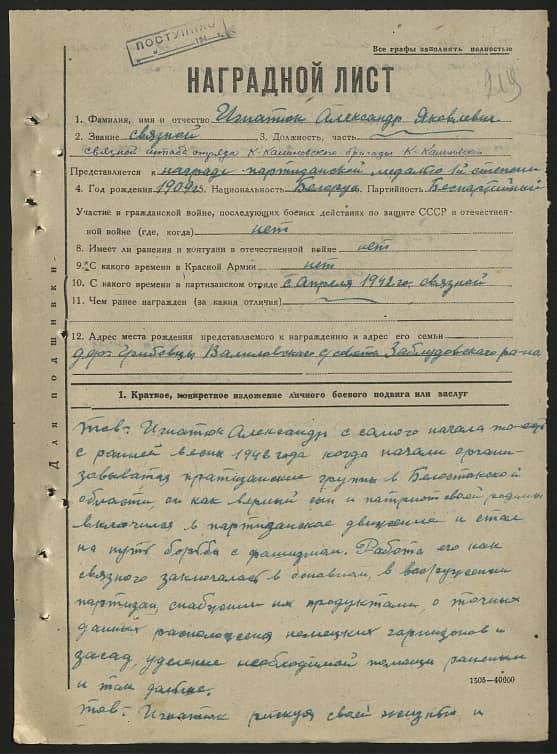 ПОСТУПИЛО
194
Все графы заполнять полностью
219
НАГРАДНОЙ ЛИСТ
1. Фамилия, имя и отчество Игнатюк Александр Яковлевич
2. Звание связной 3. Должность, часть
связной штаба отряда К-Калиновского бригады К-Калиновский
Представляется к награде партизанской медалью II степени
4. Год рождения 1909 г. 5. Национальность Белорус 6. Партийность Беспартийный
Участие в гражданской войне, последующих боевых действиях по защите СССР и отечествен-
ной войне (где, когда) нет
8. Имеет ли ранения и контузии в отечественной войне нет
9. С какого времени в Красной Армии нет
10. С какого времени в партизанском отряде с апреля 1942 г. связной
11. Чем ранее награжден (за какия отличия)
12. Адрес места рождения представляемого к награждению и адрес его семьи
дер. Грибовцы Валиловского с/совета Заблудовского р-на
Для подшивки.
1. Краткое, конкретное изложение личного боевого подвига или заслуг
тов. Игнатюк Александр с самого начала
с ранней весны 1942 года когда начали органи-
зовыватся пратизанские группы в Белостокской
области, он как верный сын и патриот своей родины
включился в партизанское движение и стал
на путь борьбы с фашизмом. Работа его как
связного заключалась в основном, в вооружении
партизан, снабжении их продуктами, о точных
данных расположения немецких гарнизонов и
засад, уделение необходимой помощи раненым
и так дальше.
1505—40000
тов. Игнатюк рискуя своей жизнью и